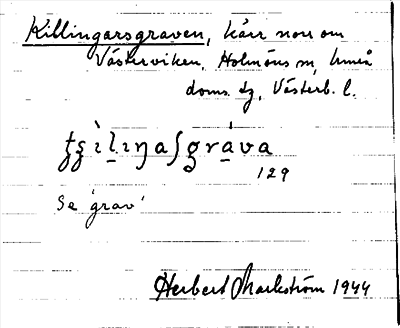 Killingarsgraven, kärr norr om
Västerviken, Holmöns sn, Umeå
doms. dg, Västerb. l.
129
Se 'grav'
Herbert Markström 1944